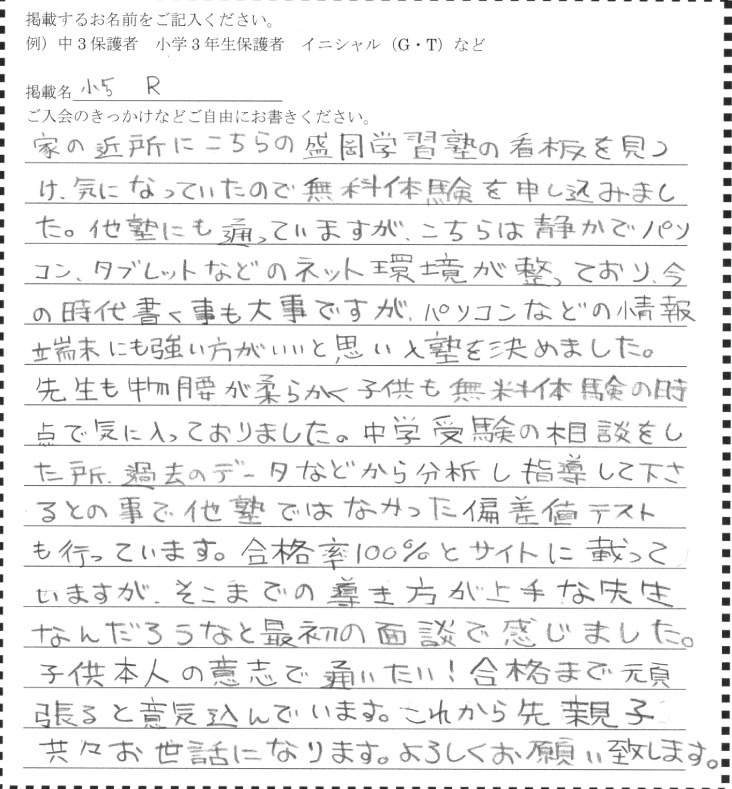 掲載するお名前をご記入ください。
例）中３保護者　小学３年生保護者　イニシャル（G・T）など
掲載名 小5　R
ご入会のきっかけなどご自由にお書きください。
家の近所にこちらの盛岡学習塾の看板を見つ
け、気になっていたので無料体験を申し込みまし
た。他塾にも通っていますが、こちらは静かでパソ
コン、タブレットなどのネット環境が整っており、今
の時代書く事も大事ですが、パソコンなどの情報
端末にも強い方がいいと思い入塾を決めました。
先生も物腰が柔らかく子供も無料体験の時
点で気に入っておりました。中学受験の相談をし
た所、過去のデータなどから分析し指導して下さ
るとの事で他塾ではなかった偏差値テスト
も行っています。合格率100%とサイトに載って
いますが、そこまでの導き方が上手な先生
なんだろうなと最初の面談で感じました。
子供本人の意志で通いたい！合格まで頑
張ると意気込んでいます。これから先親子
共々お世話になります。よろしくお願い致します。